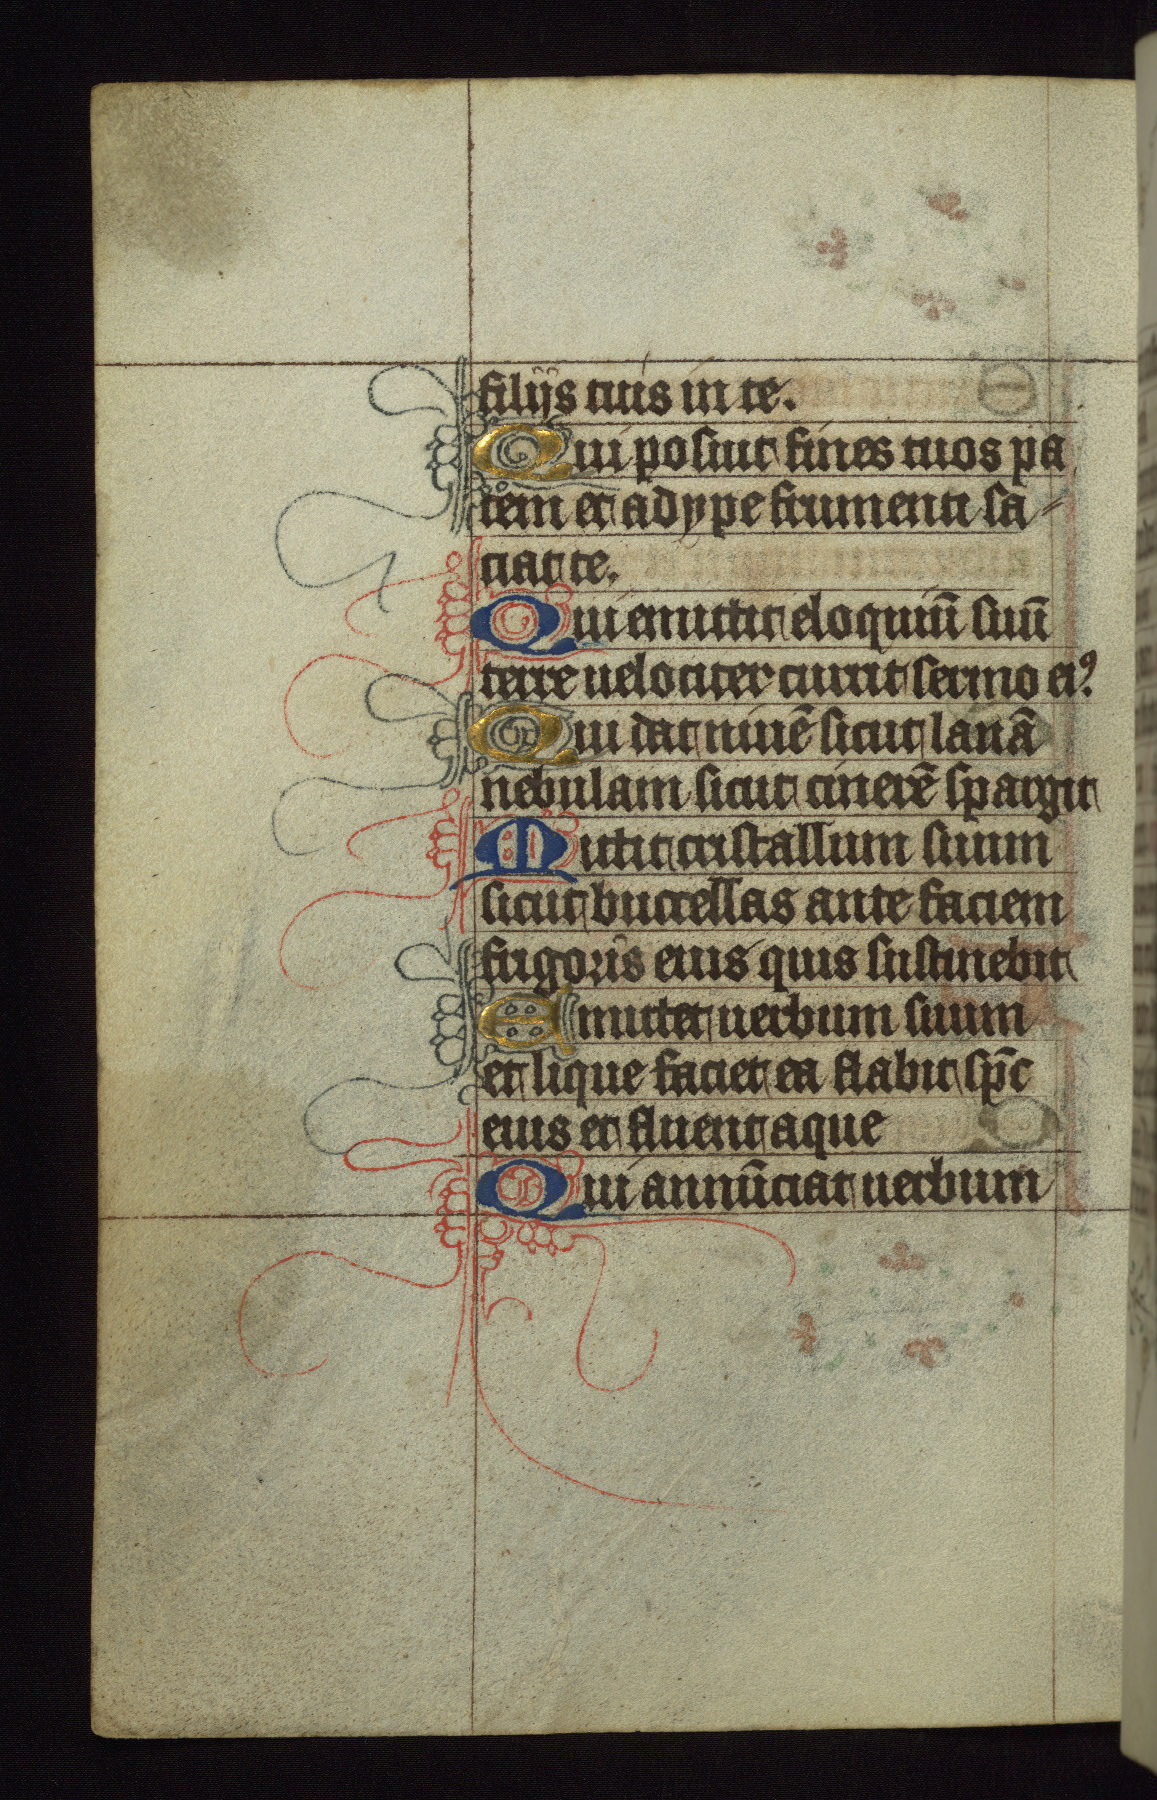 filijs tuis in te.
Qui posuit fines tuos pa
cem et adype frumenti sa-
ciat te.
Qui emittit eloquiū suū
terre uelociter currit sermo eiꝰ.
Qui dat niuē sicut lanā
nebulam sicut cinerē spargit
Mittit cristallum suum
sicut buccellas ante faciem
frigoris eius quis sustinebit
Emittet uerbum suum
et lique faciet ea flabit sp̄c
eius et fluent aque
Qui annūciat uerbum